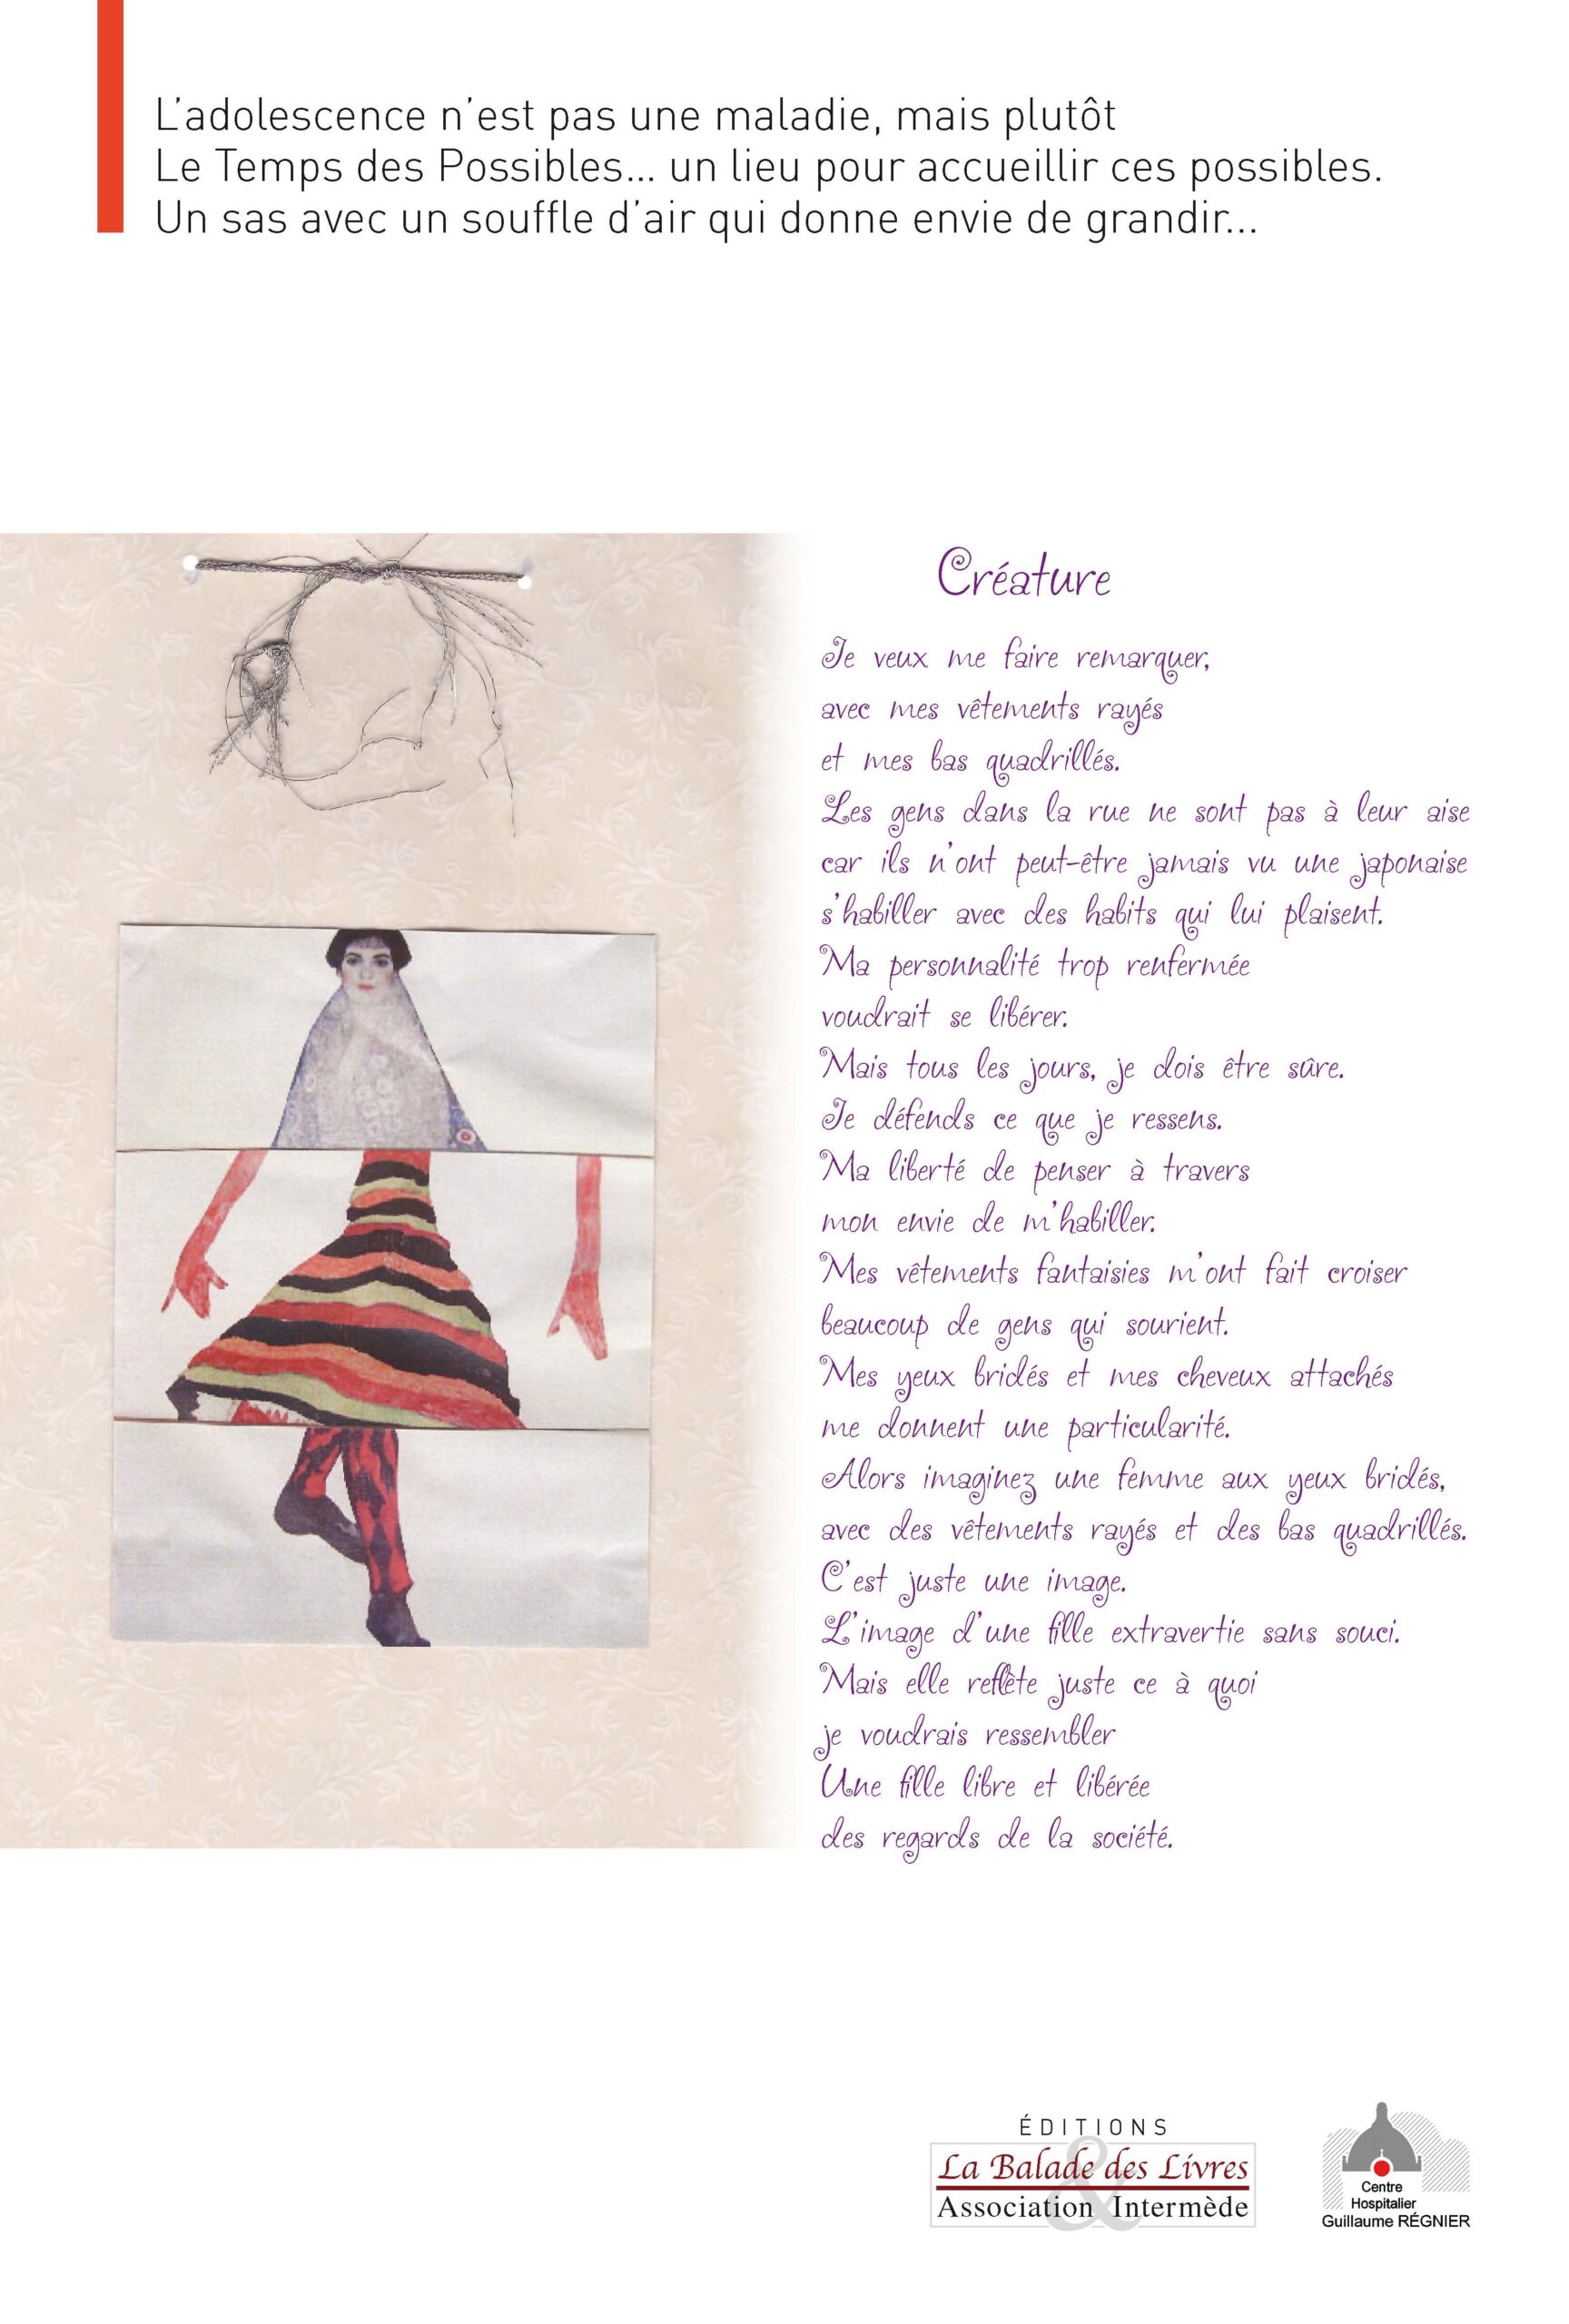 L'adolescence n'est pas une maladie, mais plutôt
Le Temps des Possibles... un lieu pour accueillir ces possibles.
Un sas avec un souffle d'air qui donne envie de grandir...
Créature
Je veux me faire remarquer,
avec mes vêtements rayés
et mes bas quadrillés.
Les gens dans la rue ne sont pas à leur aise
car ils n'ont peut-être jamais vu une japonaise
s'habiller avec des habits qui lui plaisent.
Ma personnalité trop renfermée
voudrait se libérer.
Mais tous les jours, je dois être sûre.
Je défends ce que je ressens.
Ma liberté de penser à travers
mon envie de m'habiller.
Mes vêtements fantaisies m'ont fait croiser
beaucoup de gens qui sourient.
Mes yeux bridés et mes cheveux attachés
me donnent une particularité.
Alors imaginez une femme aux yeux bridés,
avec des vêtements rayés et des bas quadrillés.
C'est juste une image.
L'image d'une fille extravertie sans souci.
Mais elle reflète juste ce à quoi
je voudrais ressembler
Une fille libre et libérée
des regards de la société.
ÉDITIONS
La Balade des Livres
&
Association Intermède
Centre
Hospitalier
Guillaume RÉGNIER